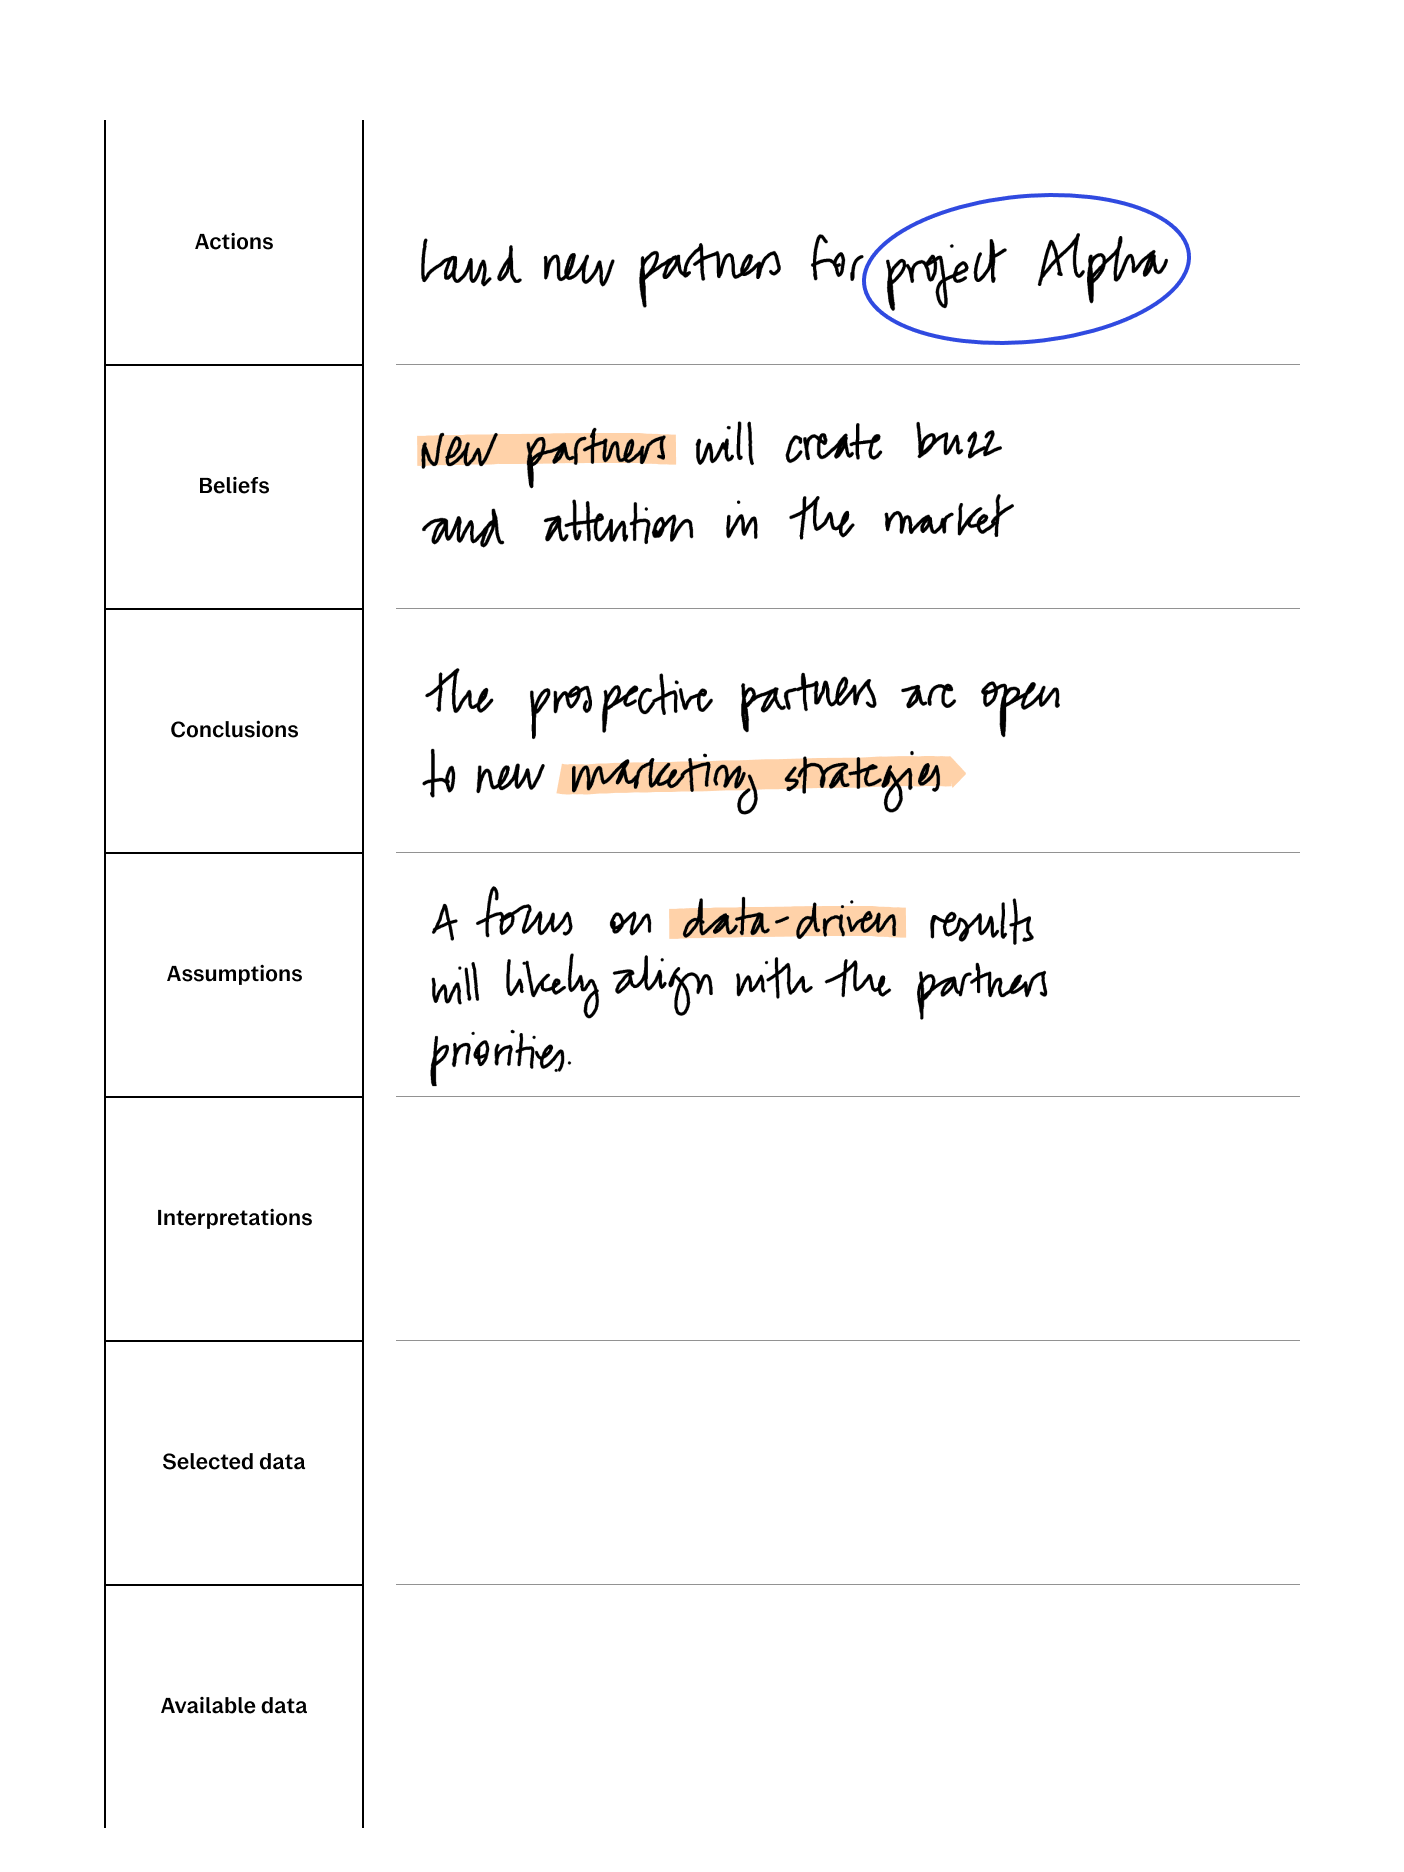 Actions
Land new partners for project Alpha
Beliefs
New partners will create buzz
and attention in the market
Conclusions
The prospective partners are open
to new marketing strategies
Assumptions
A focus on data-driven results
will likely align with the partners
priorities.
Interpretations
Selected data
Available data